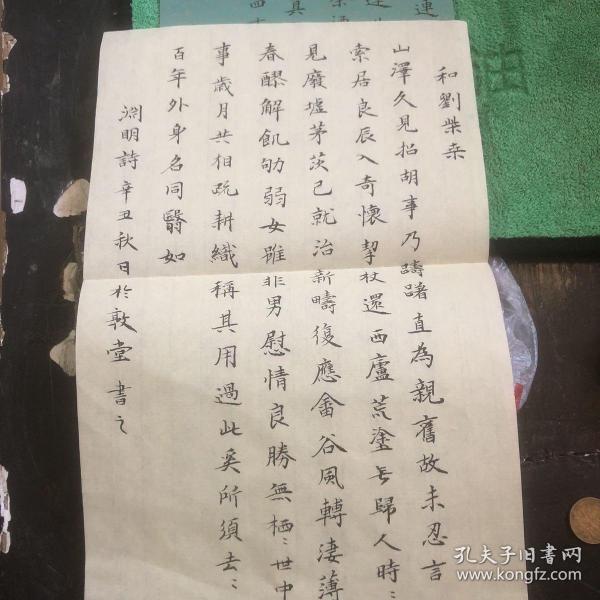 和劉柴桑
山澤久見招胡事乃躊躇直為親舊故未忍言
索居良辰入奇懷挈杖還西廬荒塗無歸人時〻
見廢墟茅茨已就治新疇復應畬谷風轉淒薄
春醪解飢劬弱女雖非男慰情良勝無栖〻世中
事歲月共相疏耕織稱其用過此奚所須去〻
百年外身名同翳如
淵明詩辛丑秋日於敦堂書之
孔夫子旧书网
www.kongfz.com